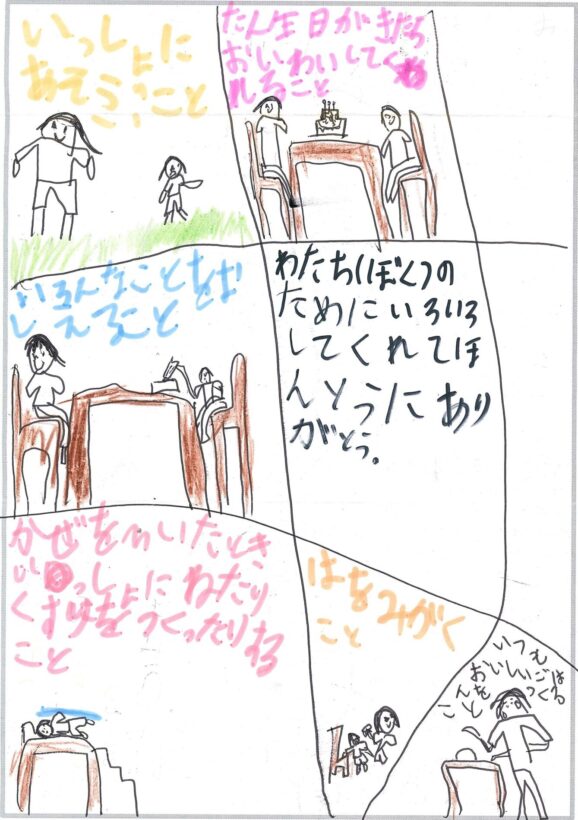 いっしょに
あそぶこと
たん生日がきたら
おいわいしてく
れること
いろんなことをお
しえること
わたち(ぼく)の
ためにいろいろ
してくれてほ
んとうにあり
がとう。
かぜをひいたとき
いっしょにねたり
くすりをつくったりする
こと
はをみがく
こと
いつも
おいしいごは
んをつくる
こと